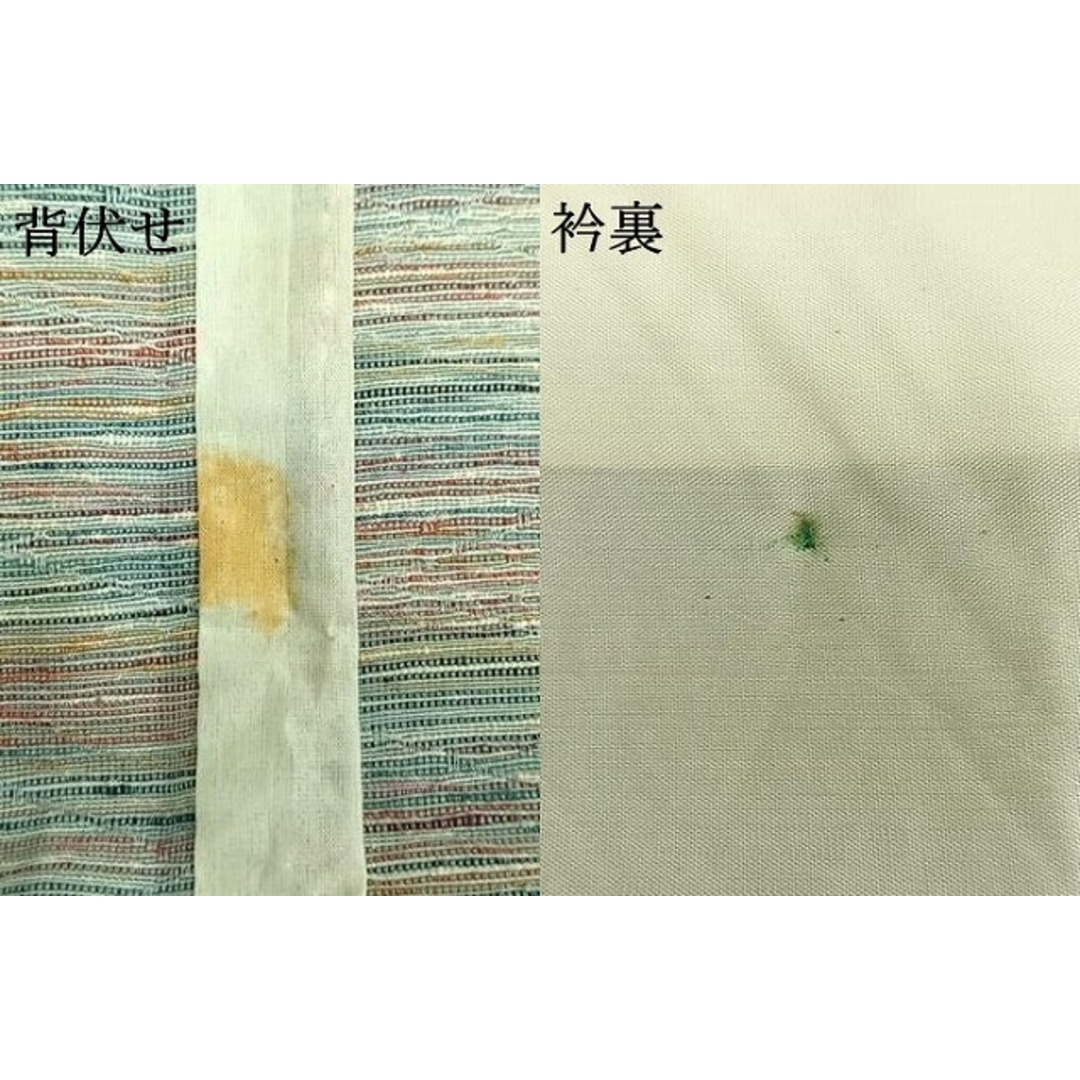 背伏せ
衿裏